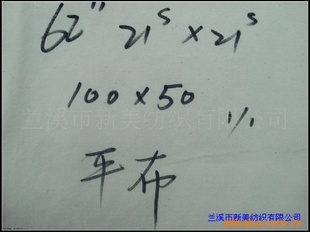 62" 21ˢ×21ˢ
100×50
1/1
兰溪市新美纺织有限公司
平布
兰溪市新美纺织有限公司